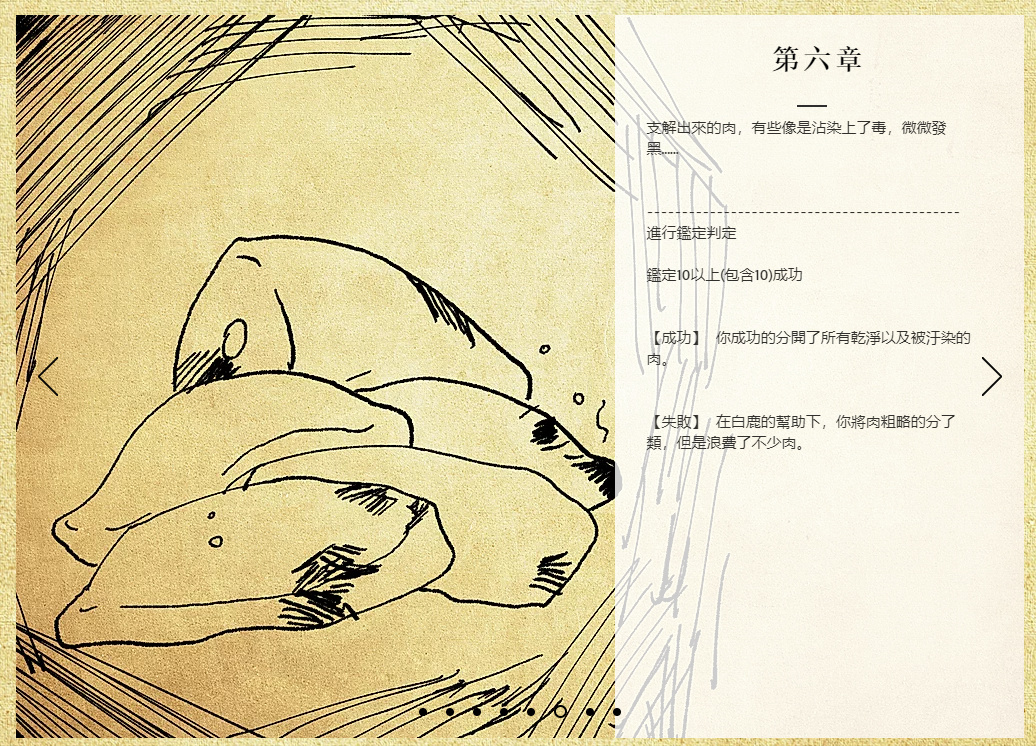 第六章
支解出來的肉，有些像是沾染上了毒，微微發
黑......
進行鑑定判定
鑑定10以上(包含10)成功
【成功】 你成功的分開了所有乾淨以及被汙染的
肉。
【失敗】 在白鹿的幫助下，你將肉粗略的分了
類，但是浪費了不少肉。